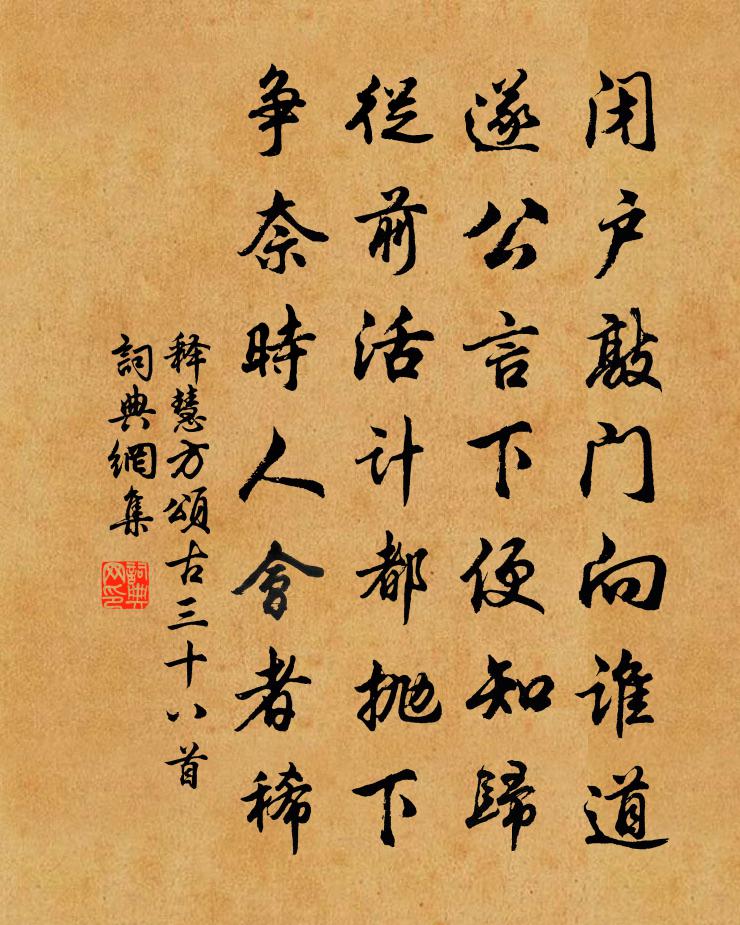 闭户敲门向谁道
遂公言下便知歸
從前活计都抛下
争奈時人會者稀
释慧方頌古三十八首
詞典網集
詞典网印